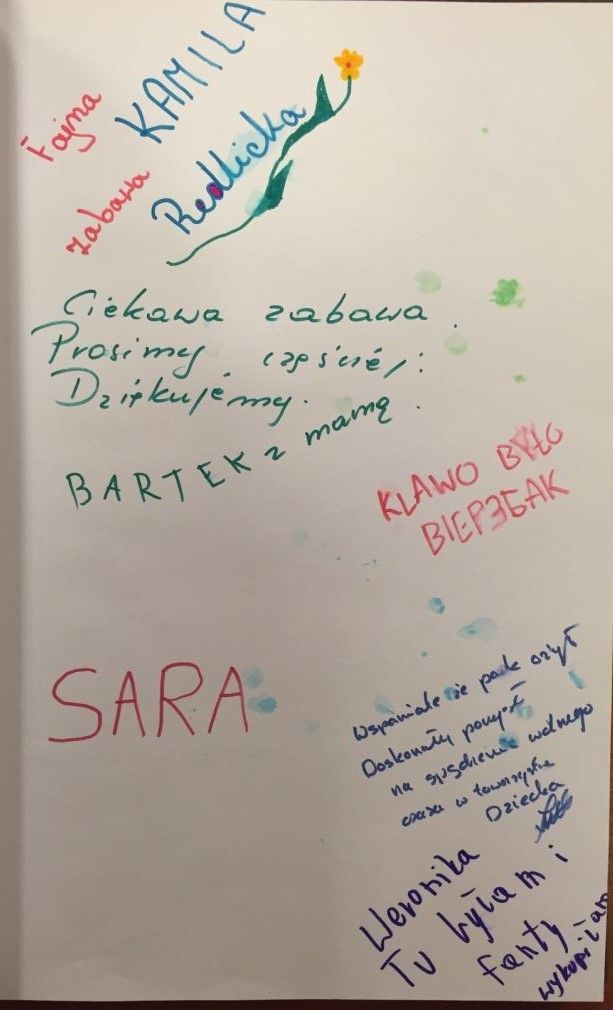 Fajna
zabawa
KAMILA
Redlicka
Ciekawa zabawa.
Prosimy częściej!
Dziękujemy.
BARTEK z mamą.
KLAWO BYŁO
SARA
Wspaniale że park ożył
Doskonały pomysł
na spędzenie wolnego
czasu w towarzystwie
Dziecka
Weronika
Tu byłam i
fanty
wykupiłam